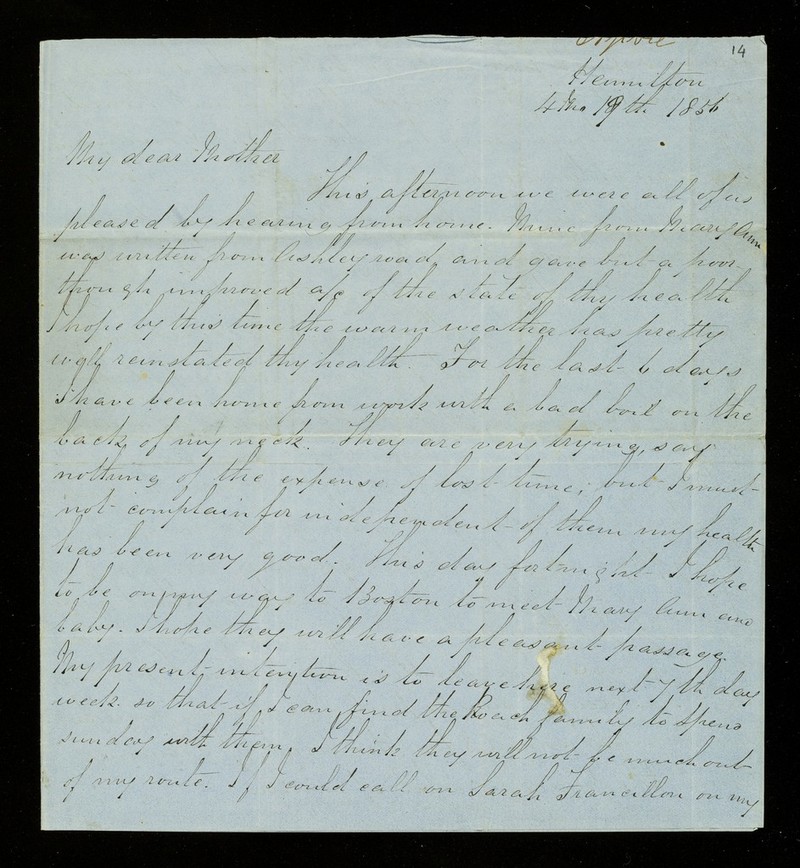 14
Hamilton
4 Mo 19th 1856
My dear Mother
This afternoon we were all of us
pleased by hearing from home. Mine from Mary Ann
was written from Ashley road, and gave but a poor
though improved a/c of the state of thy health
I hope by this time the warm weather has pretty
well reinstated thy health. For the last 6 days
I have been home from work with a bad boil on the
back of my neck. They are very trying, say
nothing of the expense of lost time, but I must
not complain for independent of them my health
has been very good. This day fortnight I hope
to be on my way to Boston to meet Mary Ann and
baby. I hope they will have a pleasant passage.
My present intention is to leave here next 7th day
week so that if I can find the Roach family to spend
sunday with them, I think they will not be much out
of my route. If I could call on Sarah Francillon on my